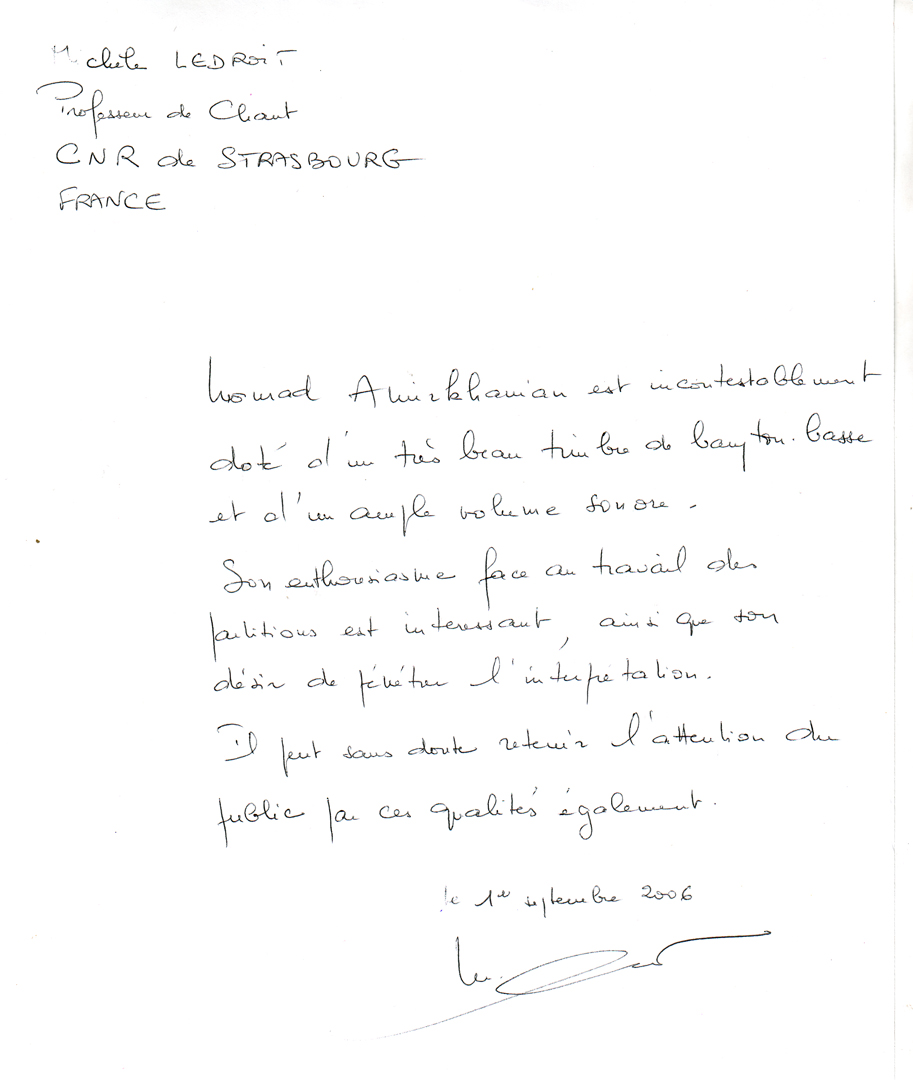 Michèle LEDROIT
Professeur de Chant
CNR de STRASBOURG
FRANCE
Nomad Amirkhanian est incontestablement
doté d'un très beau timbre de baryton-basse
et d'un ample volume sonore.
Son enthousiasme face au travail des
partitions est interessant, ainsi que son
désir de pénétrer l'interprétation.
Il peut sans doute retenir l'attention du
public par ces qualités également.
le 1er septembre 2006